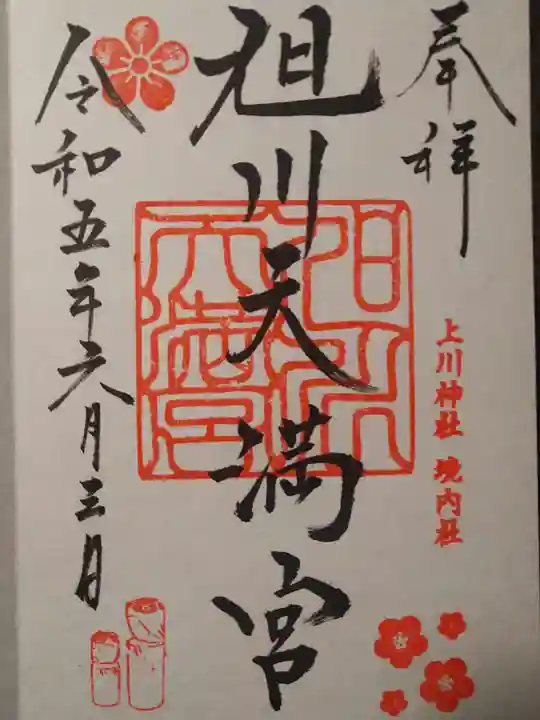 奉拝
上川神社 境内社
旭川天満宮
令和五年六月三日